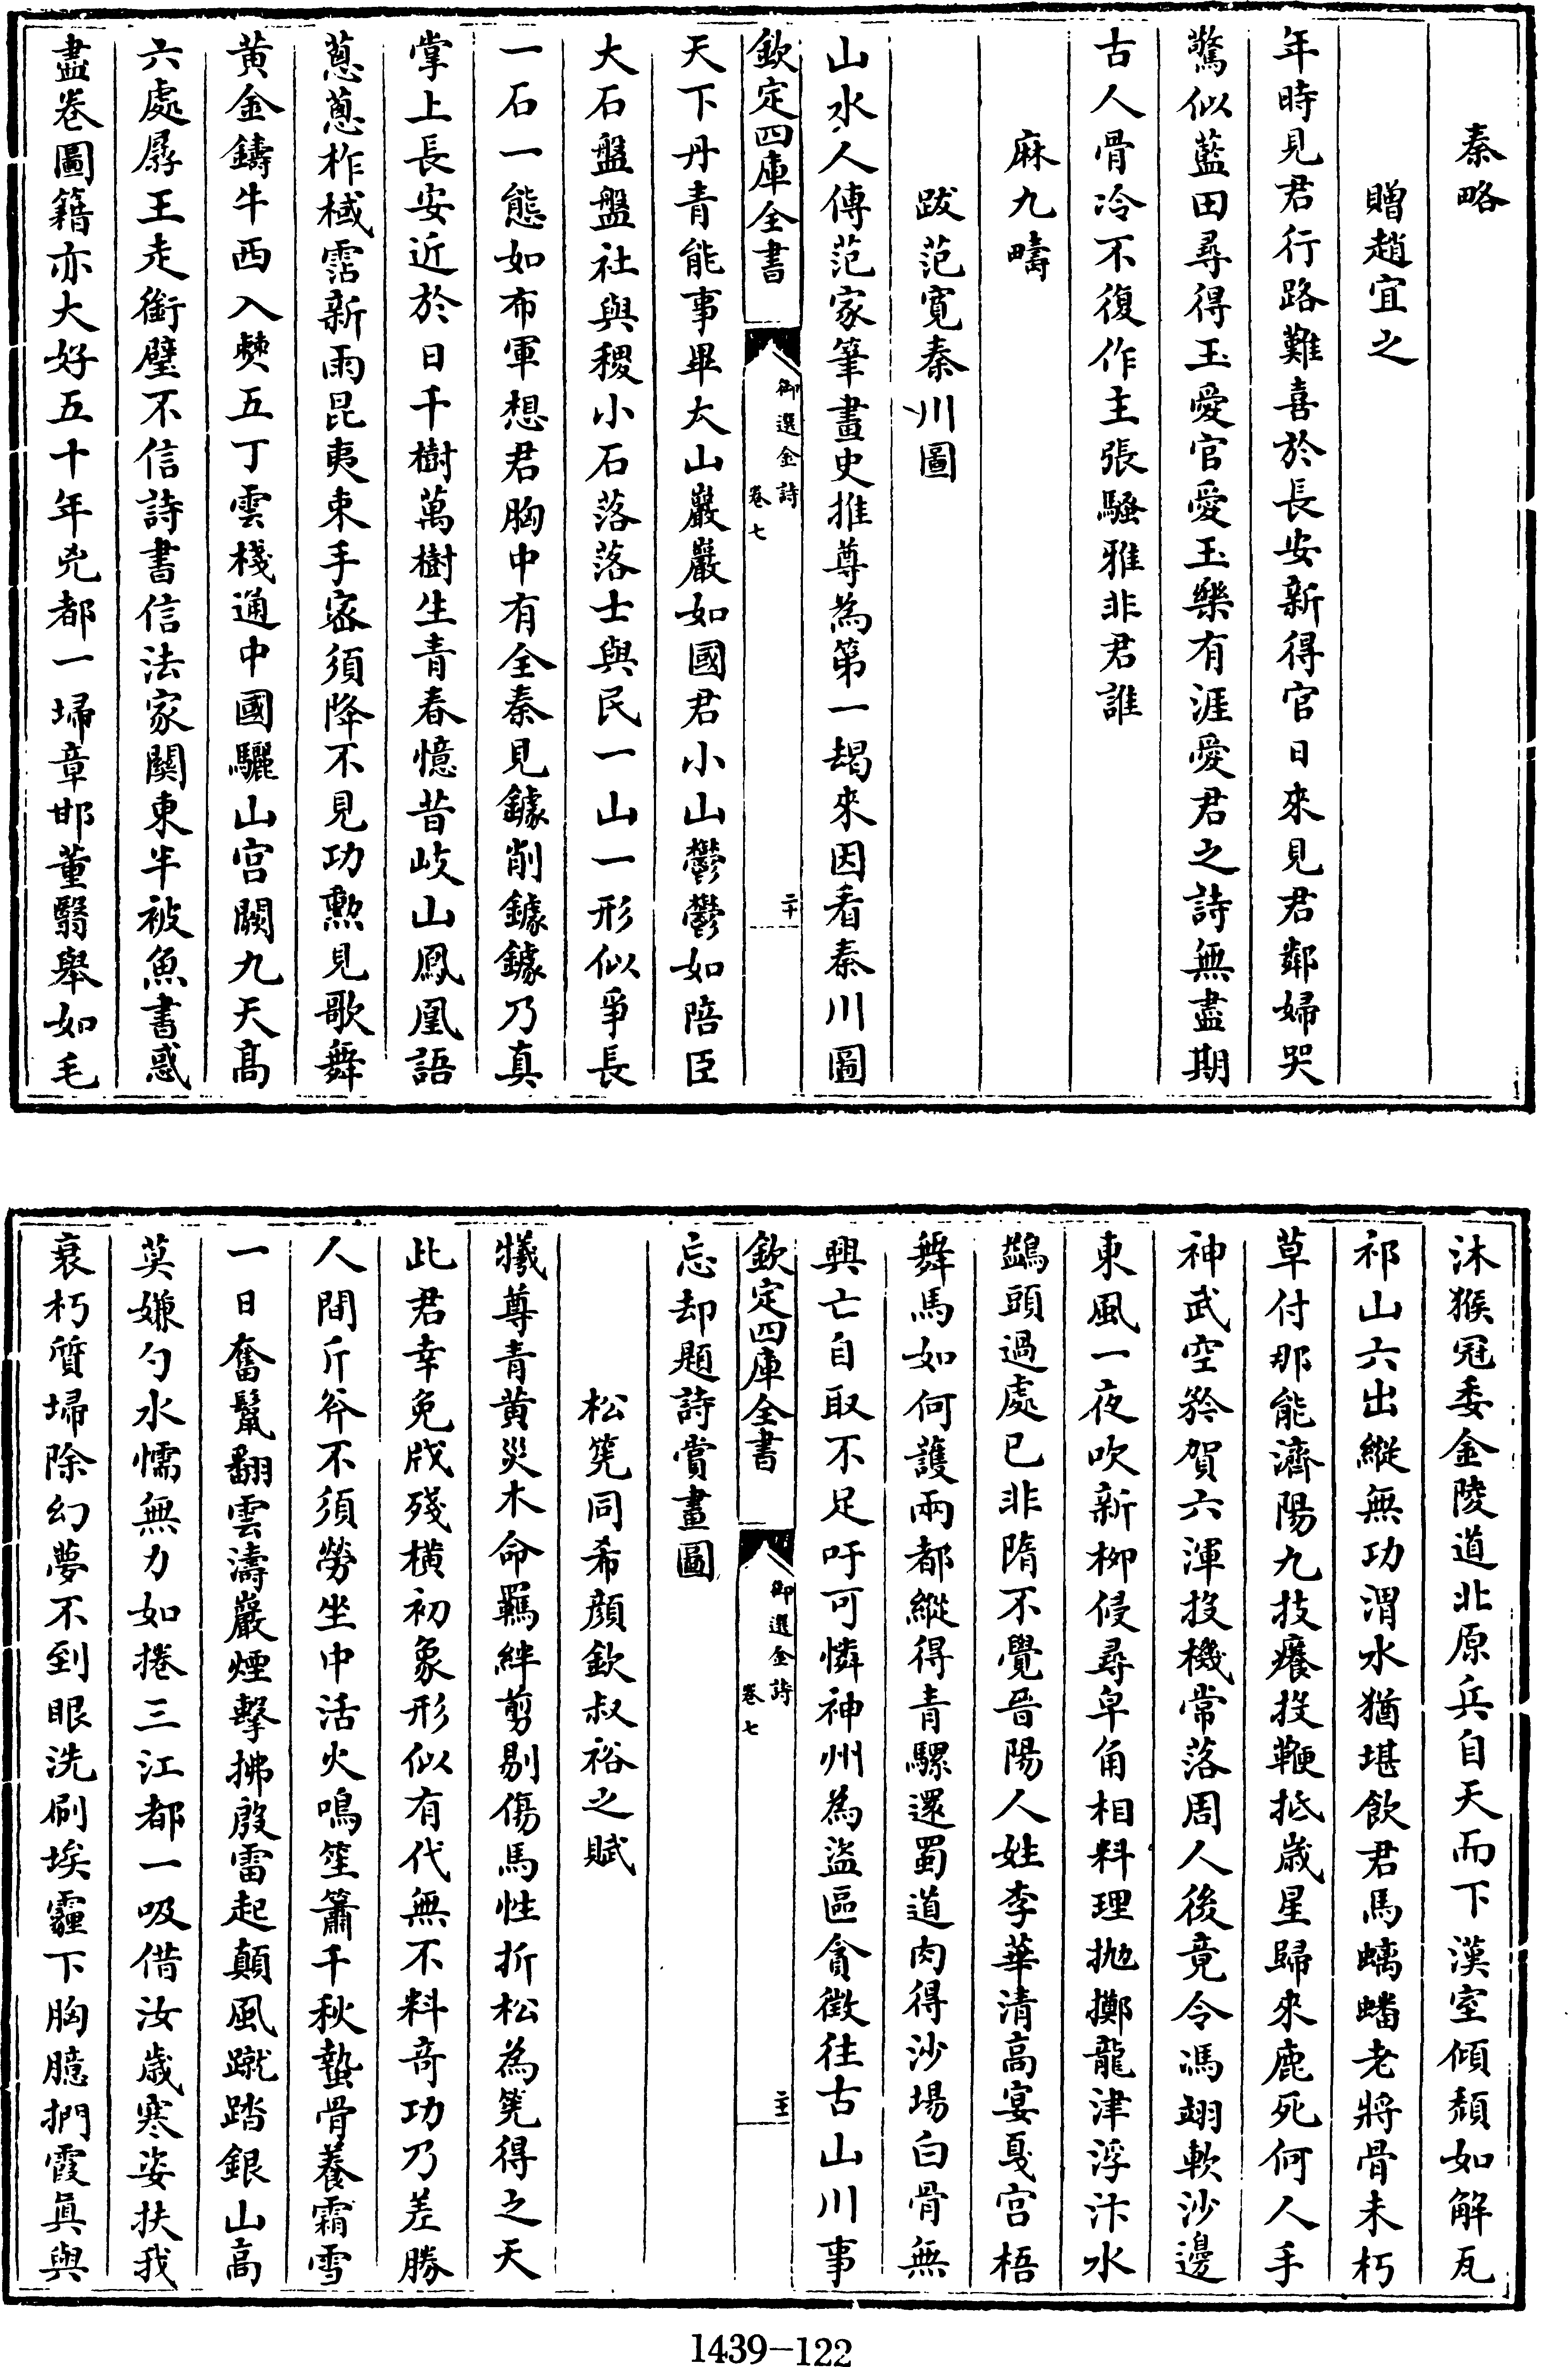 秦略
贈趙宜之
年時見君行路難喜於長安新得官日來見君鄰婦哭
驚似藍田尋得玉愛官愛玉樂有涯愛君之詩無盡期
古人骨冷不復作主張騷雅非君誰
麻九疇
跋范寛秦川圖
山水人傳范家筆畫史推尊為第一朅來因看秦川圖
欽定四庫全書
御選金詩
卷七
二十
天下丹青能事畢大山巖巖如國君小山鬱鬱如陪臣
大石盤盤社與稷小石落落士與民一山一形似爭長
一石一態如布軍想君胸中有全秦見鐻削鐻鐻乃真
掌上長安近於日千樹萬樹生青春憶昔岐山鳳凰語
蔥蔥柞棫霑新雨昆夷束手密須降不見功勲見歌舞
黄金鑄牛西入僰五丁雲棧通中國驪山宫闕九天高
六處孱王走銜璧不信詩書信法家關東半被魚書惑
盡卷圖籍亦大好五十年兇都一埽章邯董翳舉如毛
沐猴冠委金陵道北原兵自天而下漢室傾頽如解瓦
祁山六出縱無功渭水猶堪飲君馬螭蟠老將骨未朽
草付那能濟陽九技癢投鞭抵歲星歸來鹿死何人手
神武空矜賀六渾投機常落周人後竟令馮翊軟沙邊
東風一夜吹新柳侵尋阜角相料理抛擲龍津浮汴水
鷀頭過處已非隋不覺晉陽人姓李華清高宴戛宫梧
舞馬如何護兩都縱得青騾還蜀道肉得沙場白骨無
興亡自取不足吁可憐神州為盜區貪徵往古山川事
欽定四庫全書
御選金詩
卷七
主
忘却題詩賞畫圖
松筅同希顔欽叔裕之賦
犧尊青黄災木命羈絆剪剔傷馬性折松為筅得之天
此君幸免戕殘横初象形似有代無不料奇功乃差勝
人間斤斧不須勞坐中活火鳴笙簫千秋蟄骨養霜雪
一日奮鬣翻雲濤巖煙擊拂殷雷起顛風蹴踏銀山高
莫嫌勺水懦無力如捲三江都一吸借汝歲寒姿扶我
衰朽質埽除幻夢不到眼洗刷埃霾下胸臆捫霞眞與
1439-122